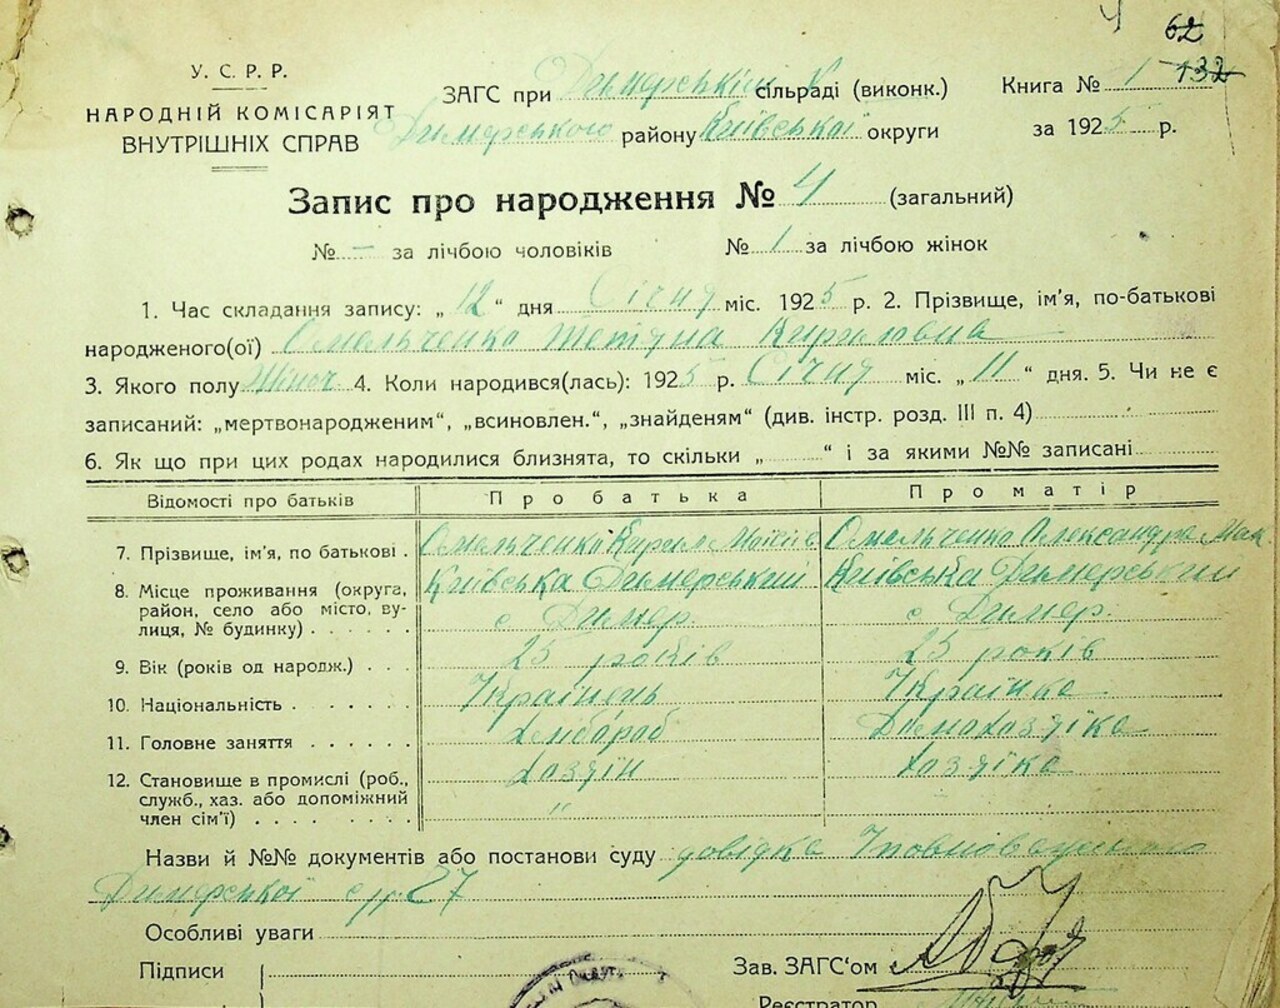 62
У. С. Р. Р.
НАРОДНІЙ КОМІСАРІЯТ
ВНУТРІШНІХ СПРАВ
ЗАГС при Димерській сільраді (виконк.)
Димерського району Київської округи
Книга № 1 132
за 1925 р.
Запис про народження № 4 (загальний)
№ — за лічбою чоловіків № 1 за лічбою жінок
1. Час складання запису: „12“ дня Січня міс. 1925 р. 2. Прізвище, ім'я, по-батькові
народженого(ої) Омельченко Тетяна Кириловна
3. Якого полу Жіноч 4. Коли народився(лась): 1925 р. Січня міс. „11“ дня. 5. Чи не є
записаний: „мертвонародженим“, „всиновлен.“, „знайденям“ (див. інстр. розд. III п. 4)
6. Як що при цих родах народилися близнята, то скільки „ “ і за якими №№ записані
Відомості про батьків Про батька Про матір
7. Прізвище, ім'я, по батькові . Омельченко Кирило Моісіїв Омельченко Олександра Мак
8. Місце проживання (округа, район, село або місто, вулиця, № будинку) . . . . . . Київська Димерський Київська Димерський
с Димер. с Димер.
9. Вік (років од народж.) . . . 25 років 25 років
10. Національність . . . . . . Українець Українка
11. Головне заняття . . . . . . Хлібороб Домохазяйка
12. Становище в промислі (роб., служб., хаз. або допоміжний член сім'ї) . . . . . . . . Хазяїн хазяйка
"
Назви й №№ документів або постанови суду довідка Уповноваженого
Димерської с/р. 27
Особливі уваги
Підписи
Зав. ЗАГС'ом
Реєстратор